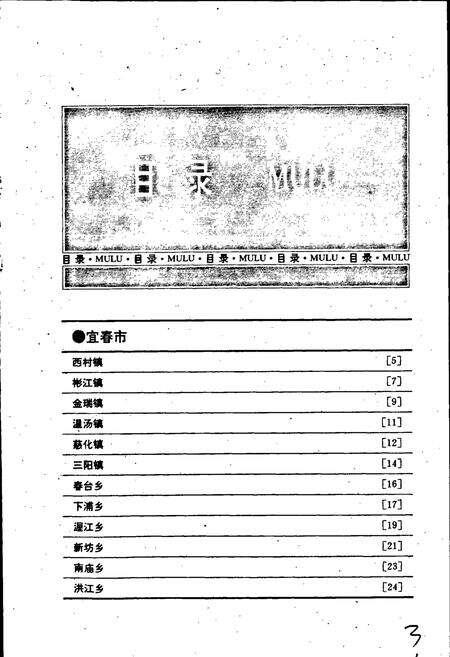 目录 MULU
目录·MULU·目录·MULU·目录·MULU·目录·MULU·目录·MULU
●宜春市
西村镇 [5]
彬江镇 [7]
金瑞镇 [9]
温汤镇 [11]
慈化镇 [12]
三阳镇 [14]
春台乡 [16]
下浦乡 [17]
渥江乡 [19]
新坊乡 [21]
南庙乡 [23]
洪江乡 [24]
3